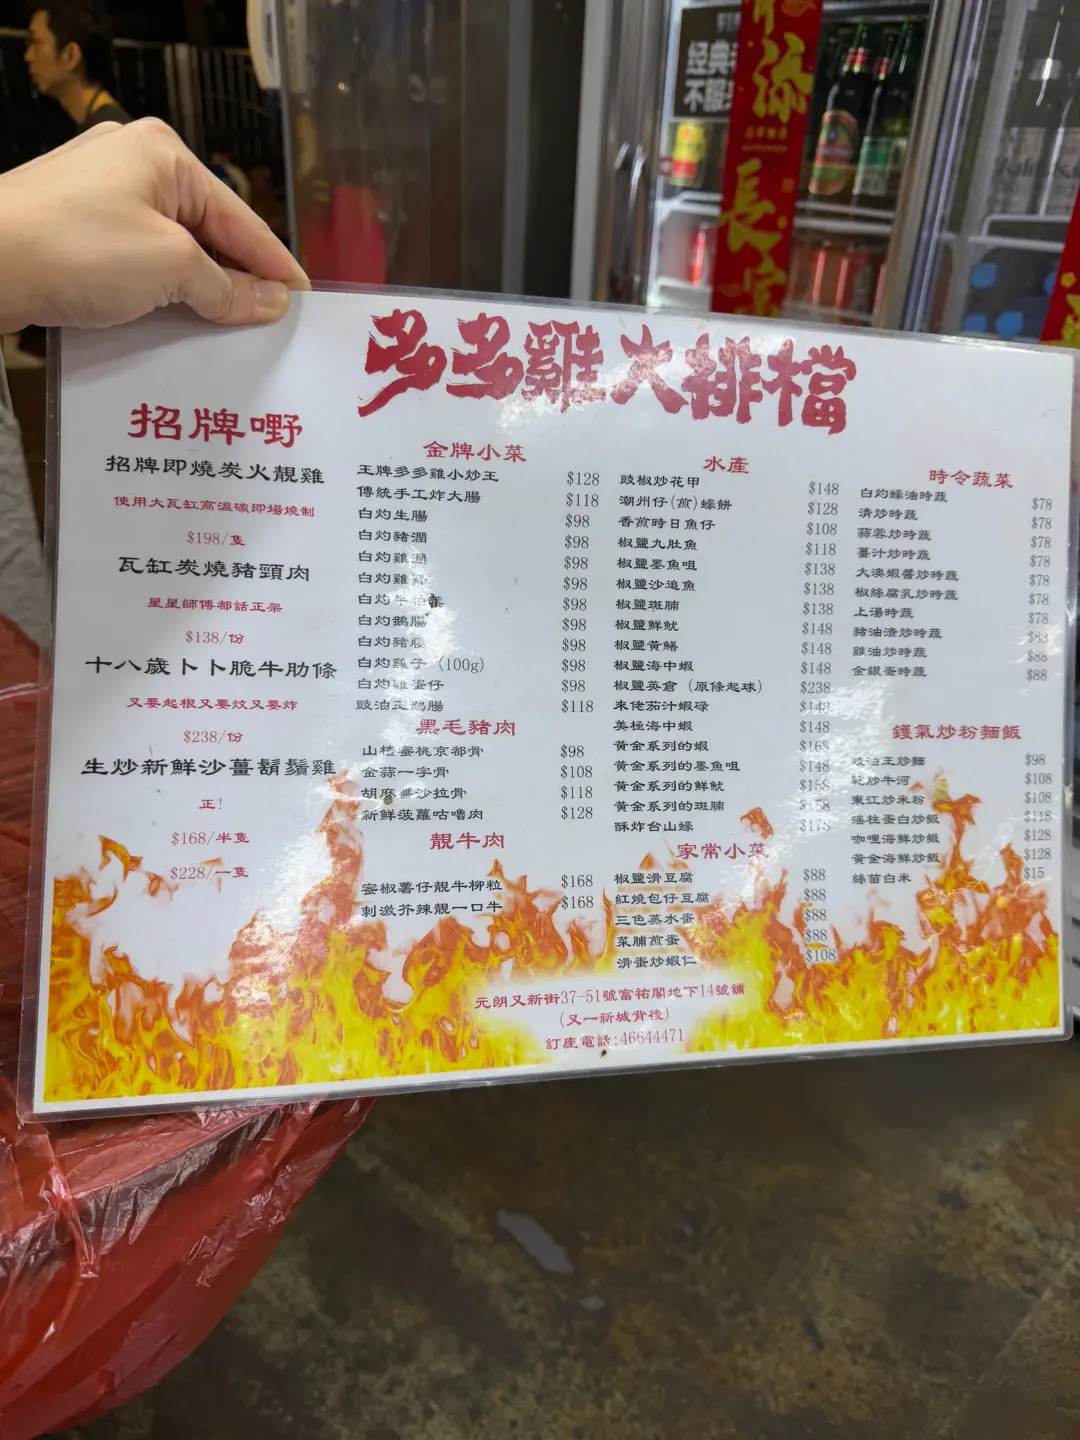 多多雞大排檔
招牌嘢
招牌即燒炭火靚雞
使用大瓦缸高溫碳即場燒制
$198/隻
瓦缸炭燒豬頸肉
星星師傅都話正架
$138/份
十八歲卜卜脆牛肋條
又要起根又要炆又要炸
$238/份
生炒新鮮沙薑鬍鬚雞
正!
$168/半隻
$228/一隻
金牌小菜
王牌多多雞小炒王 $128
傳統手工炸大腸 $118
白灼生腸 $98
白灼豬潤 $98
白灼雞潤 $98
白灼雞 $98
白灼牛柏葉 $98
白灼鵝腸 $98
白灼豬 $98
白灼雞子 (100g) $98
白灼雞蛋仔 $98
豉油王鵝腸 $118
黑毛豬肉
山楂蜜桃京都骨 $98
金蒜一字骨 $108
胡麻醬沙拉骨 $118
新鮮菠蘿咕嚕肉 $128
靚牛肉
蜜椒薯仔靚牛柳粒 $168
刺激芥辣靚一口牛 $168
水產
豉椒炒花甲 $148
潮州仔(煎)蠔餅 $128
香煎時日魚仔 $108
椒鹽九肚魚 $118
椒鹽墨魚咀 $138
椒鹽沙追魚 $138
椒鹽斑腩 $138
椒鹽鮮魷 $148
椒鹽黃鱔 $148
椒鹽海中蝦 $148
椒鹽英倉 (原條起球) $238
來佬茄汁蝦碌 $148
美極海中蝦 $148
黃金系列的蝦 $168
黃金系列的墨魚咀 $148
黃金系列的鮮魷 $158
黃金系列的斑腩
酥炸台山蠔 $178
家常小菜
椒鹽滑豆腐 $88
紅燒包仔豆腐 $88
三色蒸水蛋 $88
菜脯煎蛋 $88
滑蛋炒蝦仁 $108
時令蔬菜
白灼蠔油時蔬 $78
清炒時蔬 $78
蒜蓉炒時蔬 $78
薑汁炒時蔬 $78
大澳蝦醬炒時蔬 $78
椒絲腐乳炒時蔬 $78
上湯時蔬 $78
豬油渣炒時蔬 $88
雞油炒時蔬 $88
金銀蛋時蔬 $88
鑊氣炒粉麵飯
豉油王炒麵 $98
乾炒牛河 $108
東江炒米粉 $108
瑤柱蛋白炒飯 $118
咖哩海鮮炒飯 $128
黃金海鮮炒飯 $128
絲苗白米 $15
元朗又新街37-51號富祐閣地下14號舖
(又一新城背後)
訂座電話:46644471
经典
不服
添
長